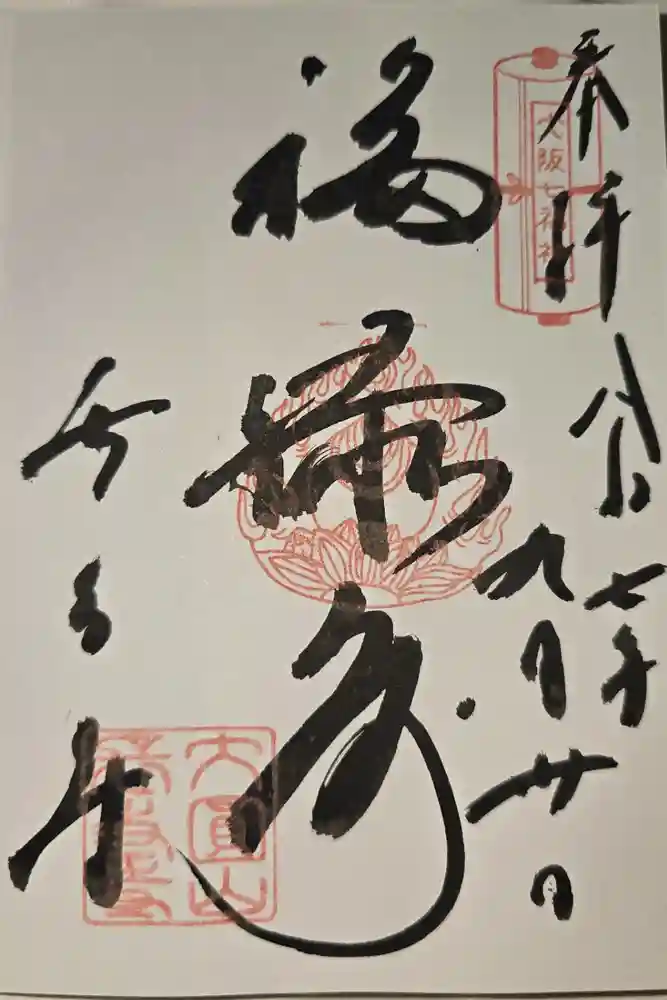 奉拝
大阪七福神
令和七年
九月廿日
福禄寿
長久寺
大圓山